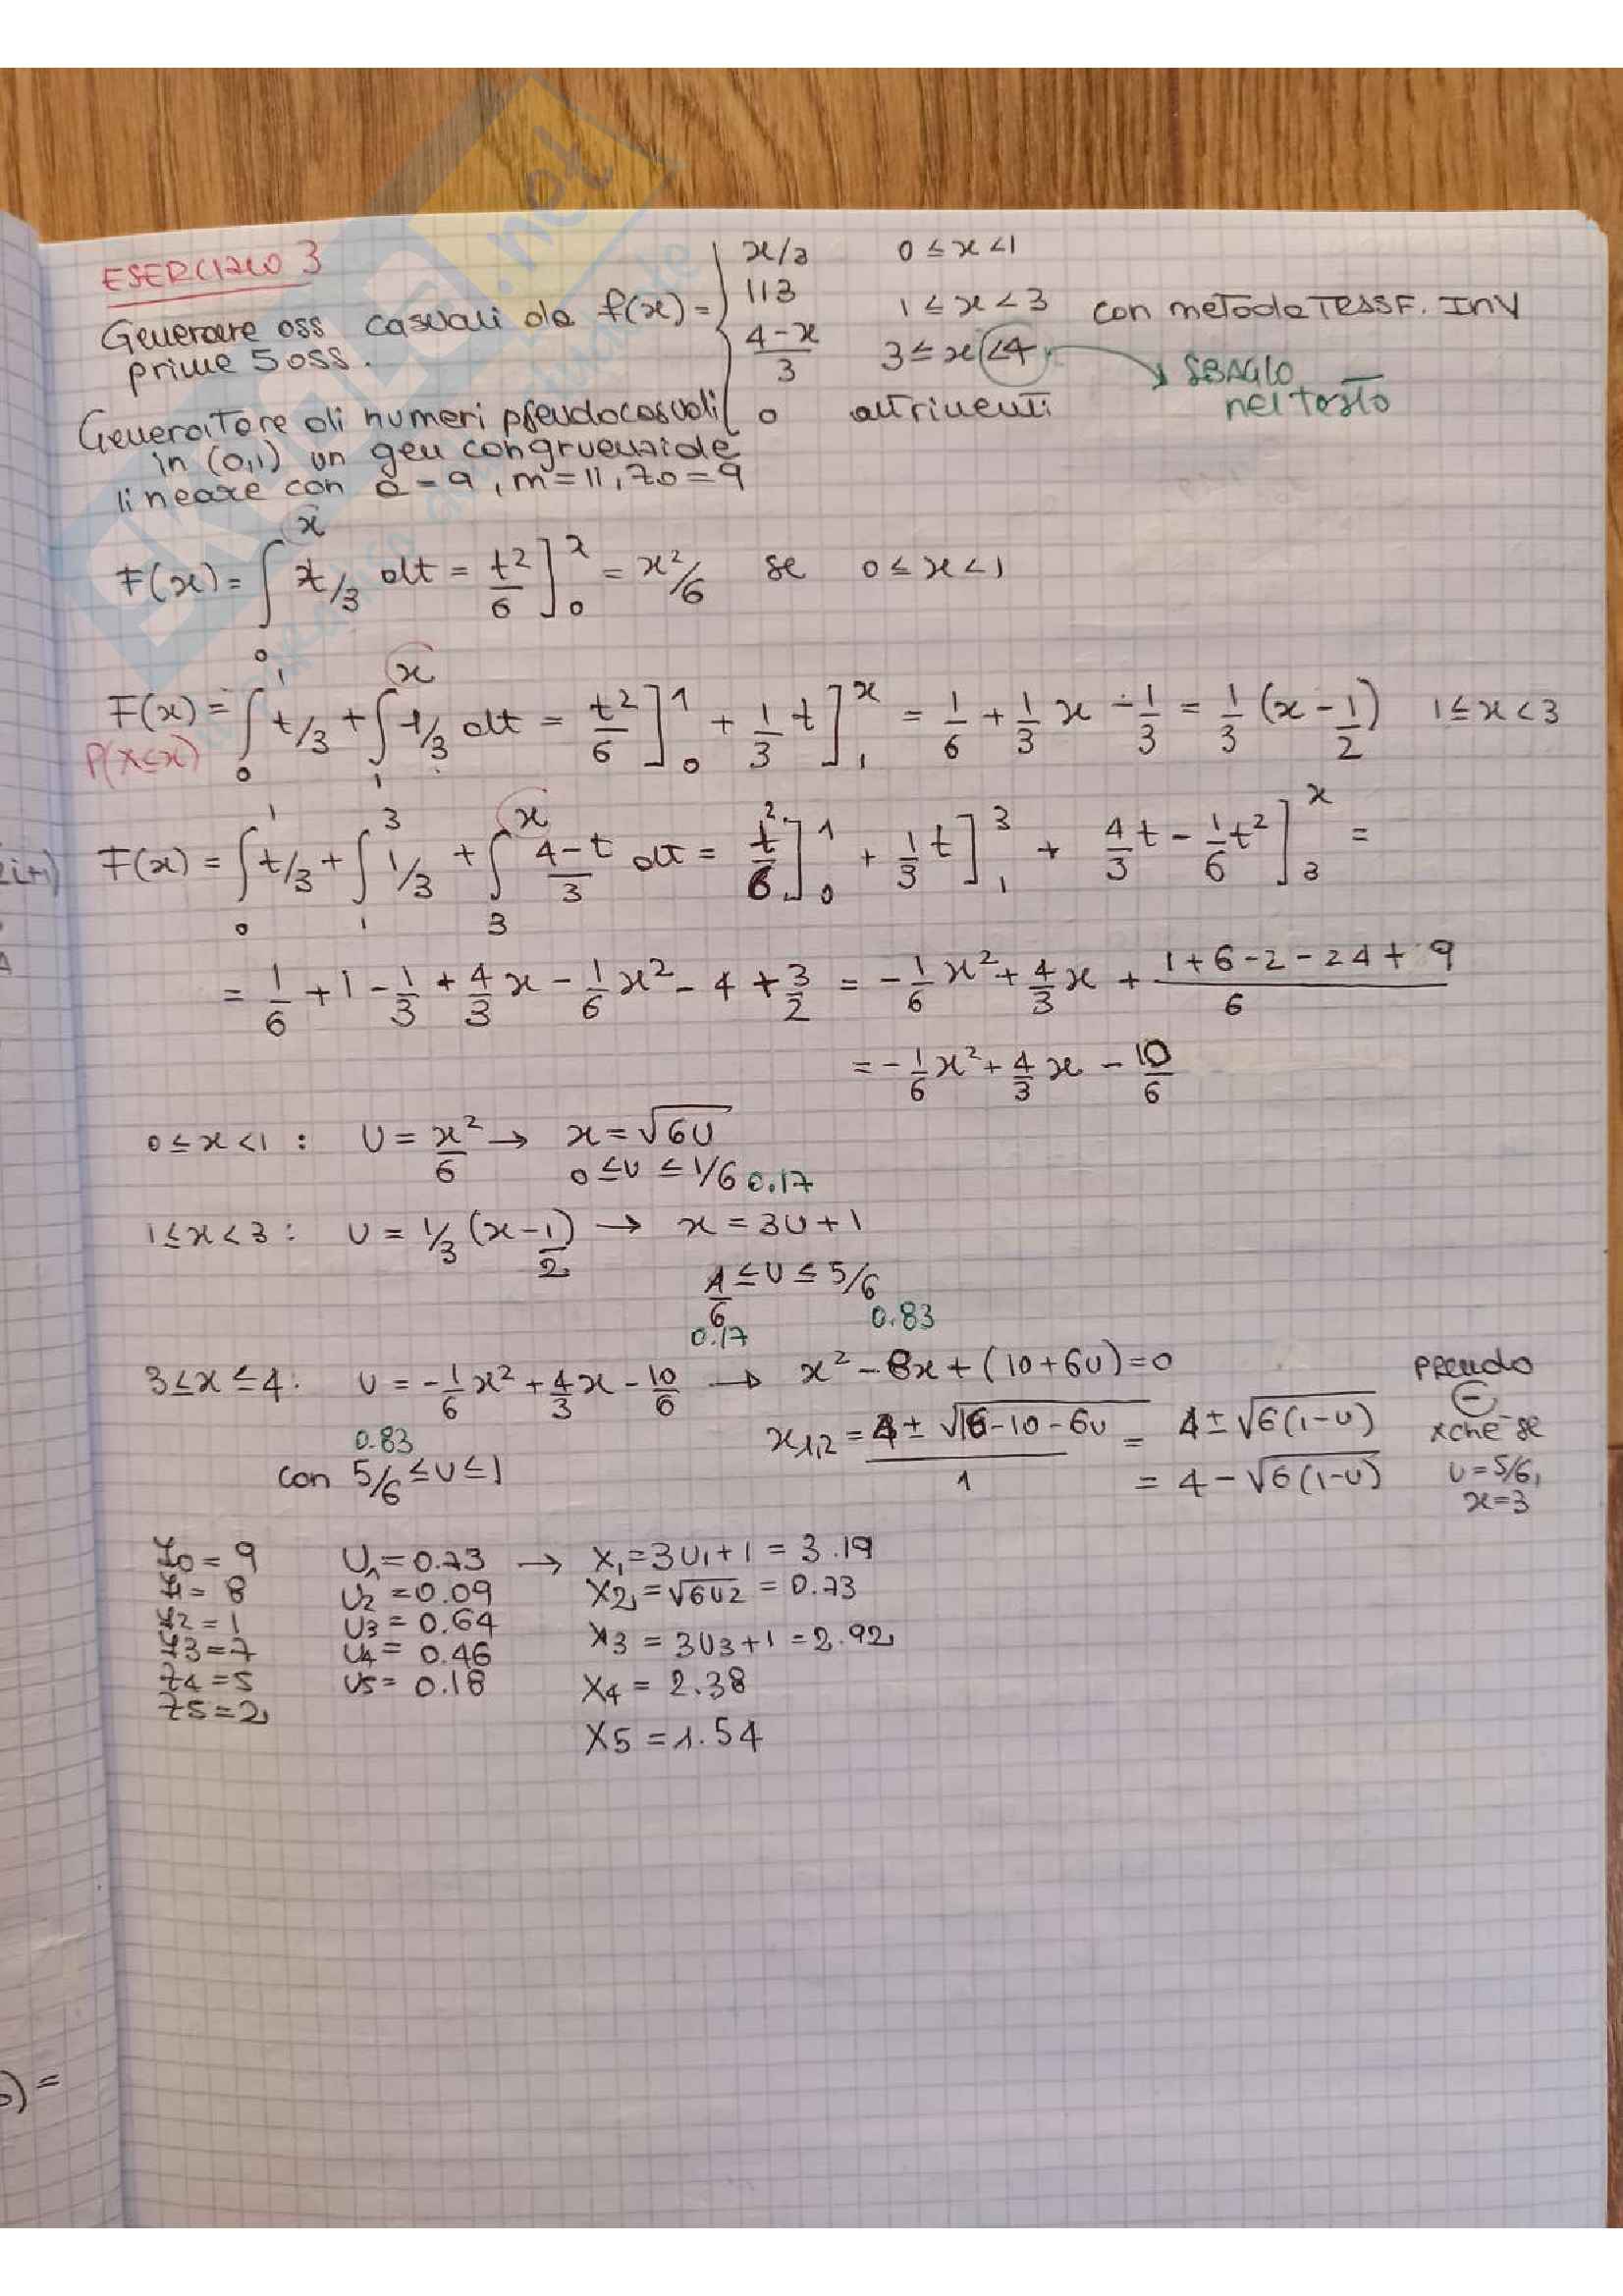 ESERCIZIO 3
Generare oss casuali da f(x) = { x/3 0 ≤ x < 1
1/3 1 ≤ x < 3 con metodo TRASF. INV
prime 5 oss.
4-x/3 3 ≤ x < 4 → SBAGLIO nel testo
0 altrimenti
Generatore di numeri pseudocasuali
in (0,1) un gen congruenziale
lineare con a = 9, m = 11, z0 = 9
F(x) = ∫_0^x t/3 dt = t²/6 ]_0^x = x²/6 se 0 ≤ x < 1
F(x) = ∫_0^1 t/3 + ∫_1^x 1/3 dt = t²/6 ]_0^1 + 1/3 t ]_1^x = 1/6 + 1/3 x - 1/3 = 1/3 (x - 1/2) 1 ≤ x < 3
P(X≤x)
F(x) = ∫_0^1 t/3 + ∫_1^3 1/3 + ∫_3^x 4-t/3 dt = t²/6 ]_0^1 + 1/3 t ]_1^3 + 4/3 t - 1/6 t² ]_3^x =
= 1/6 + 1 - 1/3 + 4/3 x - 1/6 x² - 4 + 3/2 = - 1/6 x² + 4/3 x + 1+6-2-24+9/6
= - 1/6 x² + 4/3 x - 10/6
0 ≤ x < 1 : U = x²/6 → x = √6U
0 ≤ U ≤ 1/6 0.17
1 ≤ x < 3 : U = 1/3 (x - 1/2) → x = 3U + 1
1/6 ≤ U ≤ 5/6
0.17 0.83
3 ≤ x ≤ 4 : U = - 1/6 x² + 4/3 x - 10/6 → x² - 8x + (10 + 6U) = 0
x1,2 = 4 ± √16-10-6U / 1 = 4 ± √6(1-U)
= 4 - √6(1-U)
prendo
⊖
xchè se
U = 5/6,
x = 3
0.83
con 5/6 ≤ U ≤ 1
z0 = 9 U1 = 0.73 → X1 = 3U1 + 1 = 3.19
z1 = 8 U2 = 0.09 X2 = √6U2 = 0.73
z2 = 1 U3 = 0.64 X3 = 3U3 + 1 = 2.92
z3 = 7 U4 = 0.46 X4 = 2.38
z4 = 5 U5 = 0.18 X5 = 1.54
z5 = 2
) =